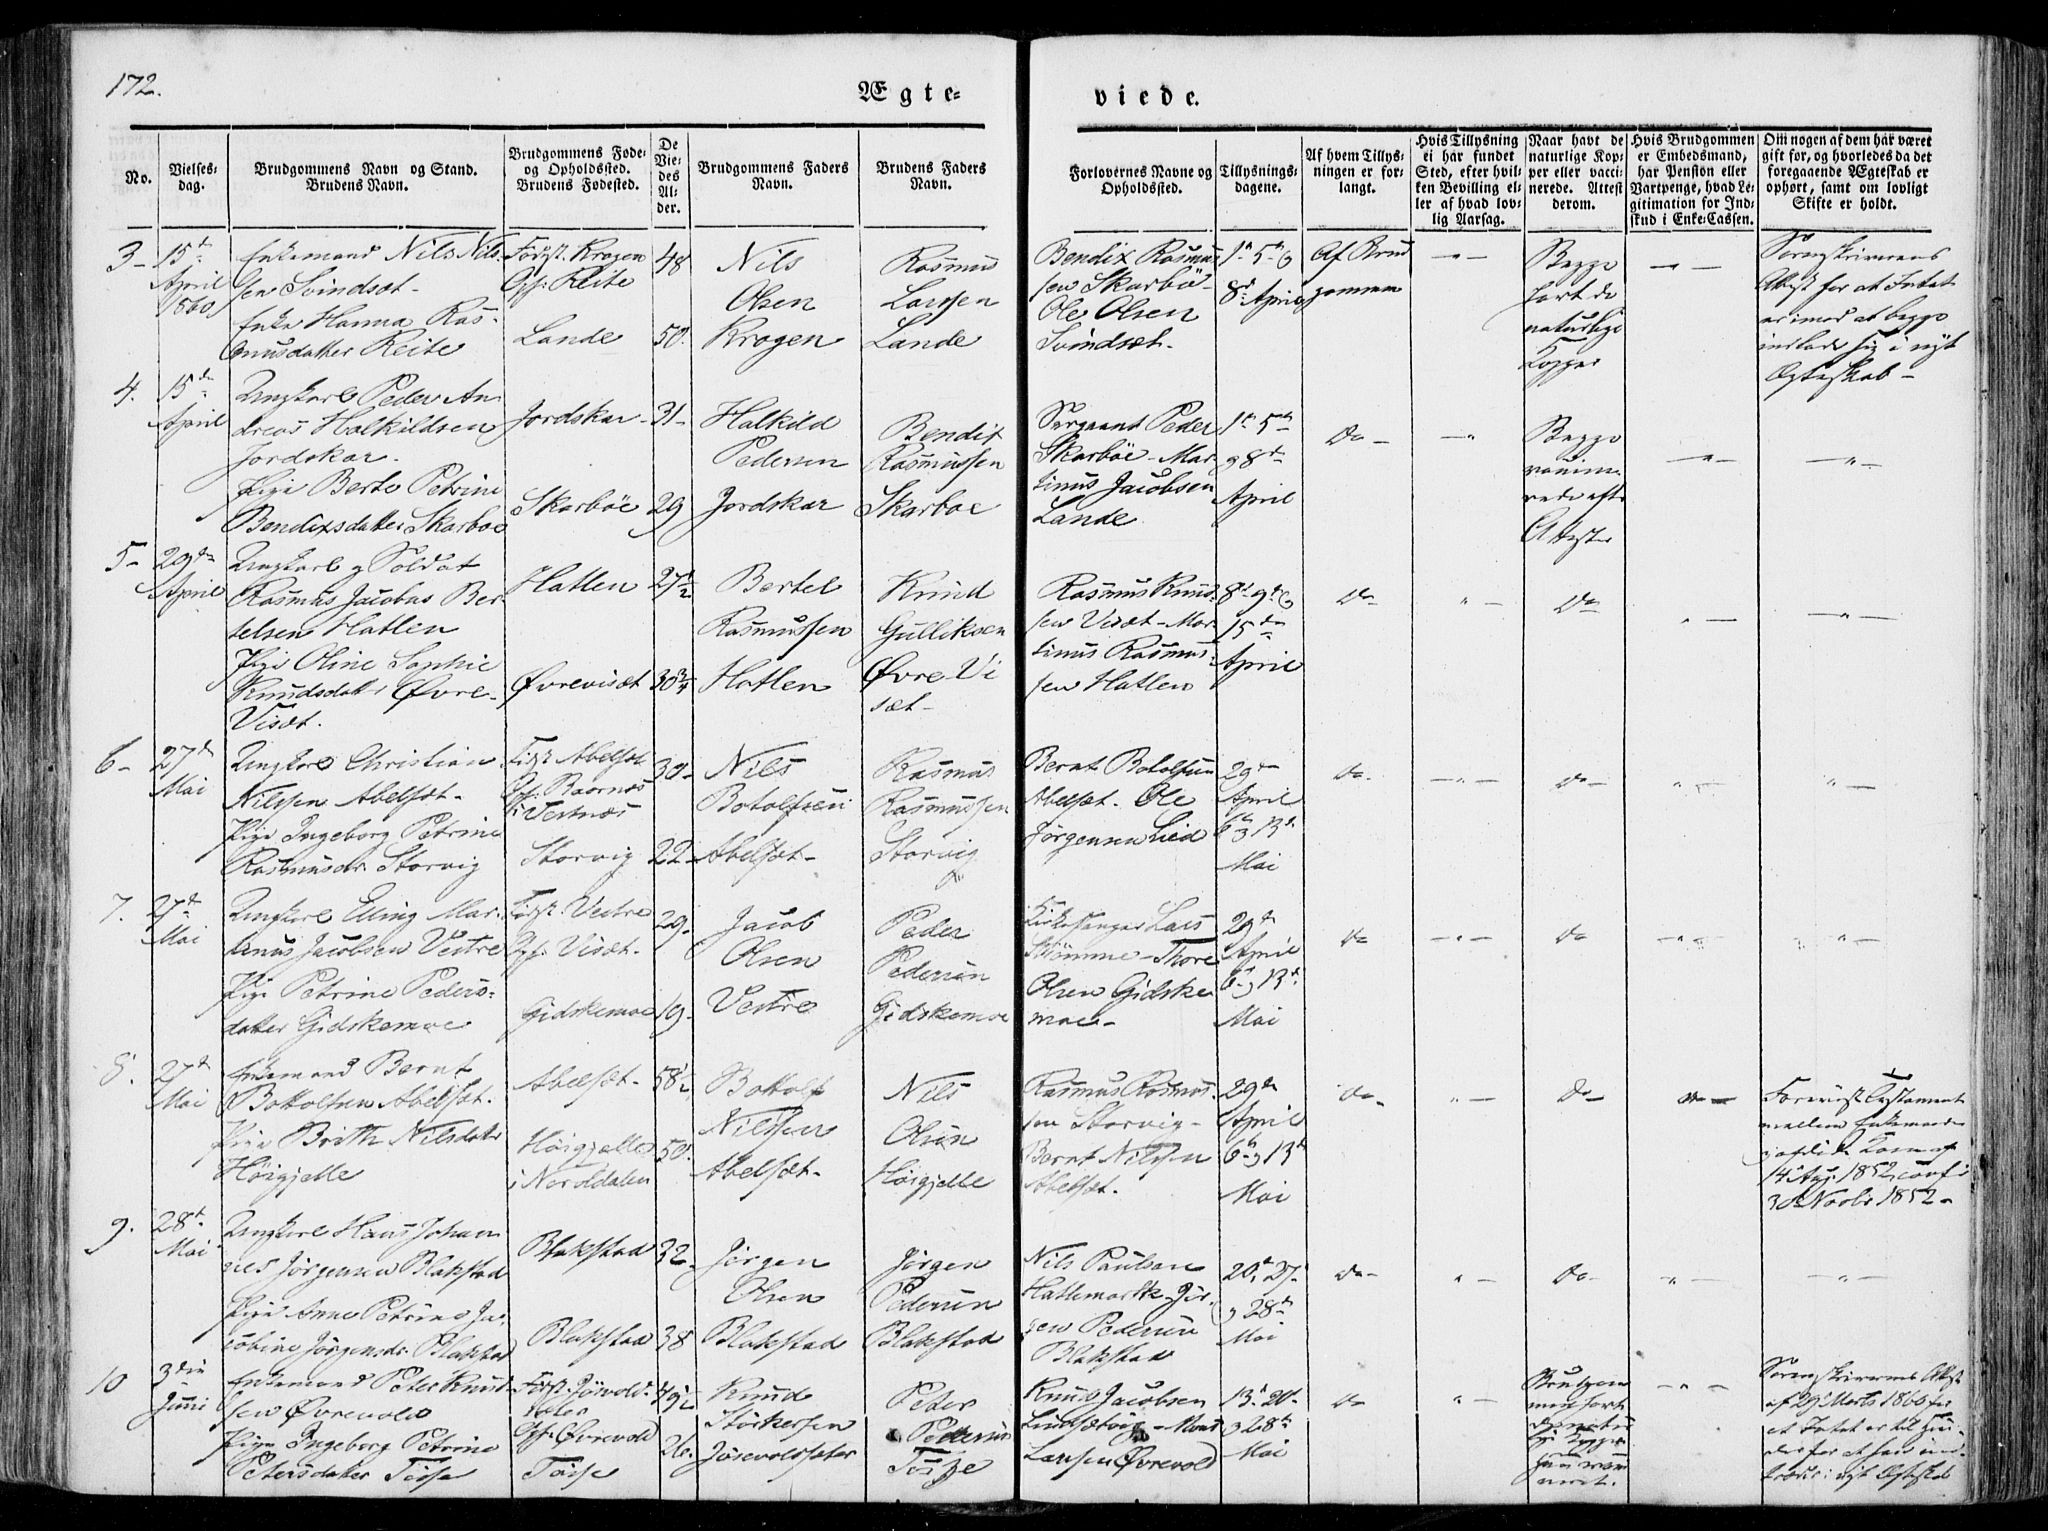 172.
Ægte-
viede.
No.
Vielses-
dag.
Brudgommens Navn og Stand.
Brudens Navn.
Brudgommens Føde-
og Opholdssted.
Brudens Fødested.
De
Vie-
des
Al-
der.
Brudgommens Faders
Navn.
Brudens Faders
Navn.
Forlovernes Navne og
Opholdssted.
Tillysnings-
dagene.
Af hvem Tillys-
ningen er for-
langt.
Hvis Tillysning
ei har fundet
Sted, efter hvil-
ken Bevilling el-
ler af hvad lov-
lig Aarsag.
Naar havt de
naturlige Kop-
per eller vacci-
nerede. Attest
derom.
Hvis Brudgommen
er Embedsmand,
har Pension eller
Vartpenge, hvad Le-
gitimation for Ind-
skud i Enke-Cassen.
Om nogen af dem har været
gift før, og hvorledes da det
foregaaende Ægteskab er
ophørt, samt om lovligt
Skifte er holdt.
3-
15de
April
1860
Enkemand Nils Nils-
sen Svindsæt-
Enke Hanna Ras-
musdatter Reite
Født. Krogen
Oph. Reite
Lande
48
50.
Nils
Olsen
Krogen
Rasmus
Larssen
Lande
Bendix Rasmus-
sen Skarbø-
Ole Olsen
Svindsæt.
1te 5te og
8de April
Af Brud
gommen
Begge
havt de
naturlige
Kopper
Sorenskriverens
Attest for at Intet
er imod at begge
indlade sig i nyt
Ægteskab-
4.
15de
April
Ungkarl Peder An-
dreas Halkildsen
Jordskar.
Pige Berte Petrine
Bendixsdatter Skarboe
Jordskar-
Skarbøe
31-
29
Halkild
Pedersen
Jordskar
Bendix
Rasmussen
Skarboe
Sergeant Peder
Skarbøe- Mar-
tinus Jacobsen
Lande
1te 5te
og 8de
April
Do-
Begge
vaccine-
rede efter
Attester
5-
29de
April
Ungkarl og Soldat
Rasmus Jacobus Ber-
telsen Hatlen
Pige Oline Sophie
Knudsdatter Øvre-
Visæt.
Hatlen
Øvrevisæt
27½
30¾
Bertel
Rasmussen
Hatlen
Knud
Gulliksen
Øvre Vi
sæt-
Rasmus Knud-
sen Visæt- Mar-
tinus Rasmus-
sen Hatlen
8de 9de og
15de
April
Do-
Do
6-
27de
Mai
Ungkarl Christian
Nilssen Abelsæt-
Pige Ingeborg Petrine
Rasmusdr. Storvig
Født Abelsæt
Oph. Baarnæs
i Vestnæs
Storvig
30-
22-
Nils
Botolfsen
Abelsæt-
Rasmus
Rasmussen
Storvig
Bernt Botolfsen
Abelsæt. Ole
Jørgensen Lied
29de
April
6te og 13de
Mai
Do.
Do-
7.
27de
Mai
Ungkarl Elling Mar-
tinus Jacobsen Vestre
Pige Petrine Peders-
datter Gidskemoe
Født. Vestre
Oph. Visæt-
Gidskemoe
29-
19-
Jacob
Olsen
Vestre
Peder
Pedersen
Gidskemoe
Kirkesanger Lars
Strømme- Thore
Olsen Gidske
moe-
29de
April
6te og 13de
Mai
Do
Do
8.
27de
Mai
Enkemand Bernt
Bottolfsen Abelsæt.
Pige Brith Nilsdatter
Høigjelle
Abelsæt-
Høigjelle
i Norddalen
58½
50.
Bottolf
Nilssen
Abelsæt-
Nils
Olsen
Høigjelle
Rasmus Rasmus-
sen Storvig-
Bernt Nilssen
Abelsæt.
29de
April
6te og 13de
Mai
Do-
Do-
Forevist Testament
mellem Enkemanden
og afdøde Kone af
14de Aug. 1852, conf. i
30 Novbr 1852-
9.
28de
Mai
Ungkarl Hans Johan
nes Jørgensen Blakstad
Pige Anne Petrine Ja-
cobine Jørgensdr. Blakstad
Blakstad
Blakstad
32-
38
Jørgen
Olsen
Blakstad
Jørgen
Pedersen
Blakstad
Nils Paulsen
Hatlemark- Jør-
gen Pedersen
Blakstad
20de 27de
og 28de
Mai
Do-
Do-
10
3die
Juni
Enkemand Peter Knud-
sen Øvrevold
Pige Ingeborg Petrine
Petersdatter Tøsse
Født. Jørvold-
sæter
Oph. Øvrevold
Tøsse
49½
26.
Knud
Størkersen
Jørevoldsæter
Peter
Pedersen
Tøsse
Knud Jacobsen
Larssen Øvrevold
13de 20de
og 28de
Mai
Do
Brudgom-
men havt
de natur-
lige Kopper
hun vacci-
neret.
Sorenskriverens Attest
af 29de Marts 1860 for
at Intet er til Hin-
der for at han ind-
træder i nyt Ægteskab